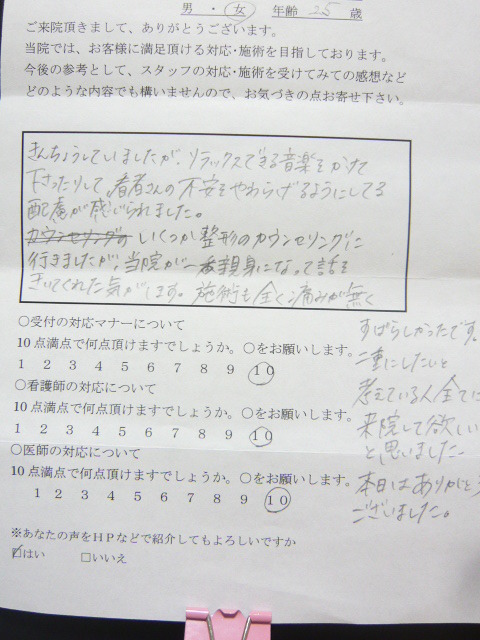 男 ・ 女 年齢 25 歳
ご来院頂きまして、ありがとうございます。
当院では、お客様に満足頂ける対応・施術を目指しております。
今後の参考として、スタッフの対応・施術を受けてみての感想など
どのような内容でも構いませんので、お気づきの点お寄せ下さい。
きんちょうしていましたが、リラックスできる音楽をかけて
下さったりして、患者さんの不安をやわらげるようにしてる
配慮が感じられました。
カウンセリングの いくつか整形のカウンセリングに
行きましたが、当院が一番親身になって話を
きいてくれた気がします。施術も全く痛みが無く
すばらしかったです。
二重にしたいと
考えている人全てに
来院して欲しい
と思いました。
本日はありがとう
ございました。
○受付の対応マナーについて
10点満点で何点頂けますでしょうか。○をお願いします。
1 2 3 4 5 6 7 8 9 10
○看護師の対応について
10点満点で何点頂けますでしょうか。○をお願いします。
1 2 3 4 5 6 7 8 9 10
○医師の対応について
10点満点で何点頂けますでしょうか。○をお願いします。
1 2 3 4 5 6 7 8 9 10
※あなたの声をHPなどで紹介してもよろしいですか
☑はい □いいえ